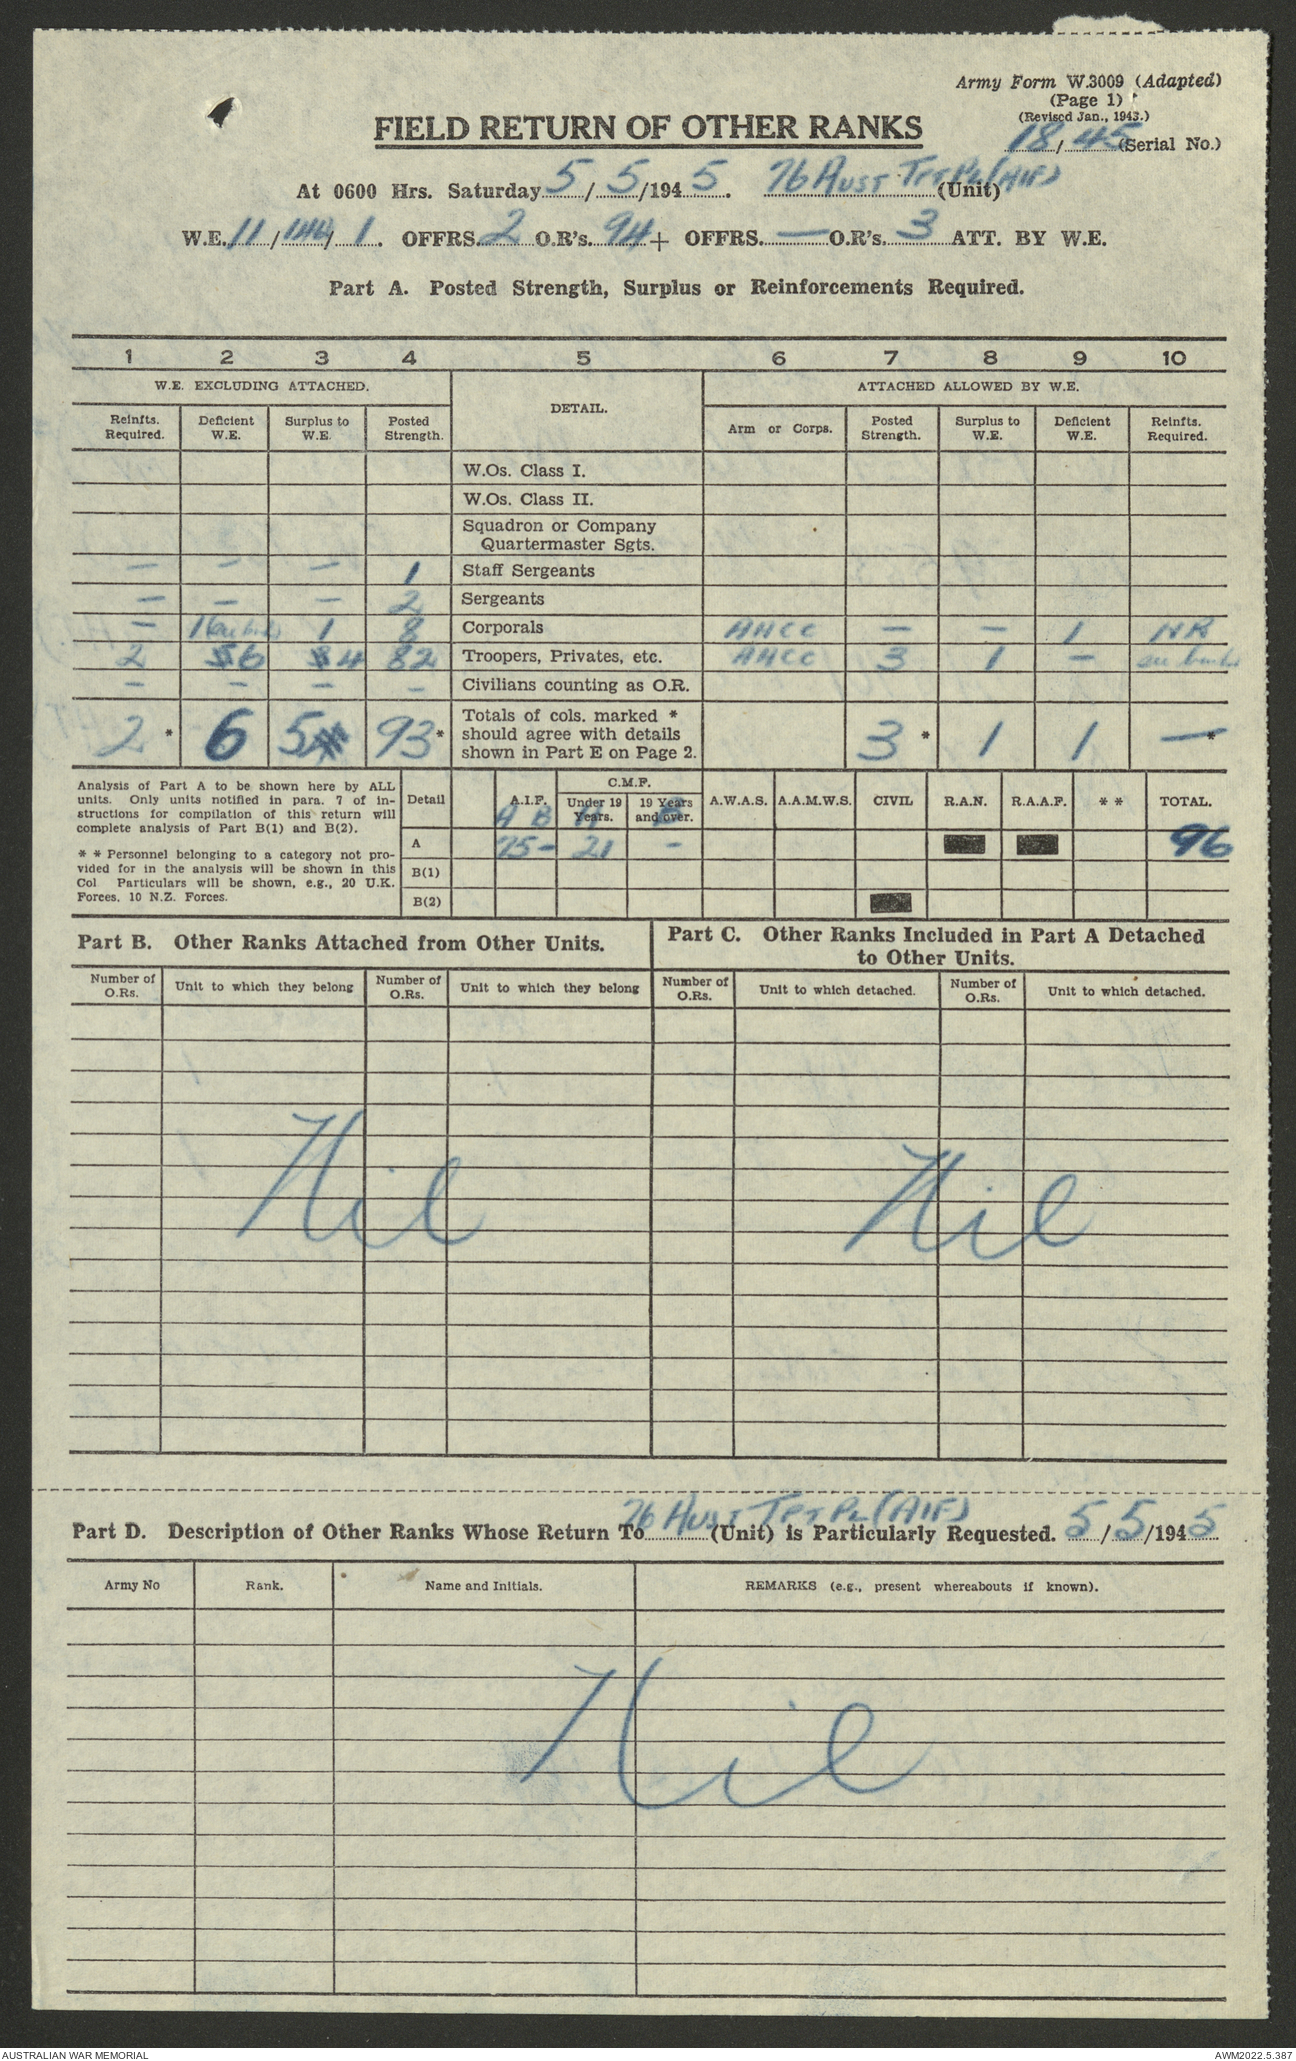 Army Form W.3009 (Adapted)
(Page 1)
(Revised Jan., 1943.)
FIELD RETURN OF OTHER RANKS
18/45 (Serial No.)
At 0600 Hrs. Saturday 5/5/1945. 76 Aust Tpt Pl (AIF) (Unit)
W.E. 11/146/1. OFFRS. 2 O.R's. 94 + OFFRS. — O.R's. 3 ATT. BY W.E.
Part A. Posted Strength, Surplus or Reinforcements Required.
1 2 3 4 5 6 7 8 9 10
W.E. EXCLUDING ATTACHED. DETAIL. ATTACHED ALLOWED BY W.E.
Reinfts. Required. Deficient W.E. Surplus to W.E. Posted Strength. Arm or Corps. Posted Strength. Surplus to W.E. Deficient W.E. Reinfts. Required.
W.Os. Class I.
W.Os. Class II.
Squadron or Company
Quartermaster Sgts.
— — — 1 Staff Sergeants
— — — 2 Sergeants
— 1 1 8 Corporals AACC — — 1 NR
2 6 4 82 Troopers, Privates, etc. AACC 3 1 —
— — — — Civilians counting as O.R.
2 * 6 5 93 * Totals of cols. marked * should agree with details shown in Part E on Page 2. 3 * 1 1 — *
Analysis of Part A to be shown here by ALL
units. Only units notified in para. 7 of in-
structions for compilation of this return will
complete analysis of Part B(1) and B(2).
* * Personnel belonging to a category not pro-
vided for in the analysis will be shown in this
Col Particulars will be shown, e.g., 20 U.K.
Forces. 10 N.Z. Forces.
Detail A.I.F. C.M.F. Under 19 Years. 19 Years and over. A.W.A.S. A.A.M.W.S. CIVIL R.A.N. R.A.A.F. * * TOTAL.
A B A B
A 75 - 21 - 96
B(1)
B(2)
Part B. Other Ranks Attached from Other Units.
Part C. Other Ranks Included in Part A Detached
to Other Units.
Number of O.Rs. Unit to which they belong Number of O.Rs. Unit to which they belong Number of O.Rs. Unit to which detached. Number of O.Rs. Unit to which detached.
Nil Nil
Part D. Description of Other Ranks Whose Return To 76 Aust Tpt Pl (AIF) (Unit) is Particularly Requested. 5/5/1945
Army No Rank. Name and Initials. REMARKS (e.g., present whereabouts if known).
Nil
AUSTRALIAN WAR MEMORIAL AWM2022.5.387